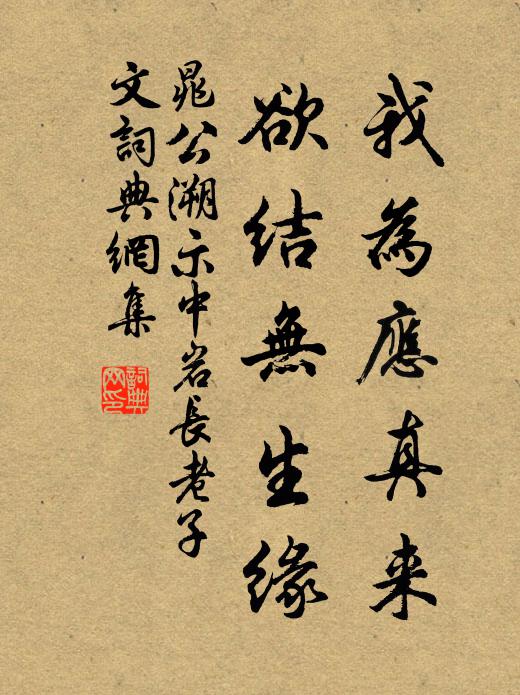 我為應真来
欲結無生緣
晁公溯示中岩長老子
文詞典網集
詞典
网印